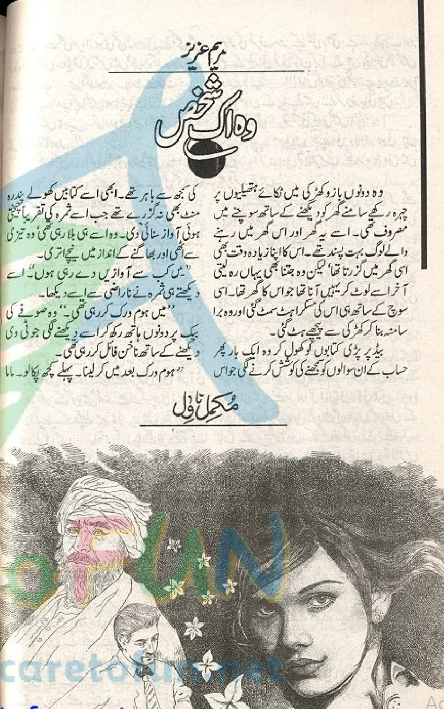 مریم عزیز
وہ اک شخص
وہ دونوں بازو کھڑکی میں ٹکائے ہتھیلیوں پر
چہرہ رکھے سامنے گھر کو دیکھنے کے ساتھ سوچنے میں
مصروف تھی۔ اسے یہ گھر اور اس گھر میں رہنے
والے لوگ بہت پسند تھے۔ اس کا اپنا زیادہ وقت بھی
اسی گھر میں گزرتا تھا لیکن وہ جتنا بھی یہاں رہ لیتی
آخر اسے لوٹ کر یہیں آنا تھا جو اس کا گھر تھا۔ اسی
سوچ کے ساتھ ہی اس کی مسکراہٹ سمٹ گئی اور وہ برا
سا منہ بنا کر کھڑکی سے پیچھے ہٹ گئی۔
بیڈ پر پڑی کتابوں کو کھول کر وہ ایک بار پھر
حساب کے ان سوالوں کو سمجھنے کی کوشش کرنے لگی جو اس
کی سمجھ سے باہر تھے۔ ابھی اسے کتابیں کھولے پندرہ
منٹ بھی نہ گزرے تھے جب اسے ثمرہ کی تقریباً چیختی
ہوئی آواز سنائی دی۔ وہ اسے ہی بلا رہی تھی وہ تیزی
سے اٹھی اور بھاگنے کے انداز میں نیچے اتری۔
"میں کب سے آوازیں دے رہی ہوں" اسے
دیکھتے ہی ثمرہ نے ناراضی سے اسے دیکھا۔
"میں ہوم ورک کر رہی تھی۔" وہ صوفے کی
بیک پر دونوں ہاتھ رکھ کر اسے دیکھنے لگی جو ٹی وی
دیکھنے کے ساتھ ناخن فائل کر رہی تھی۔
"ہوم ورک بعد میں کر لینا۔ پہلے کچھ پکا لو۔ ماما
مکمل ناول
caretofun.net